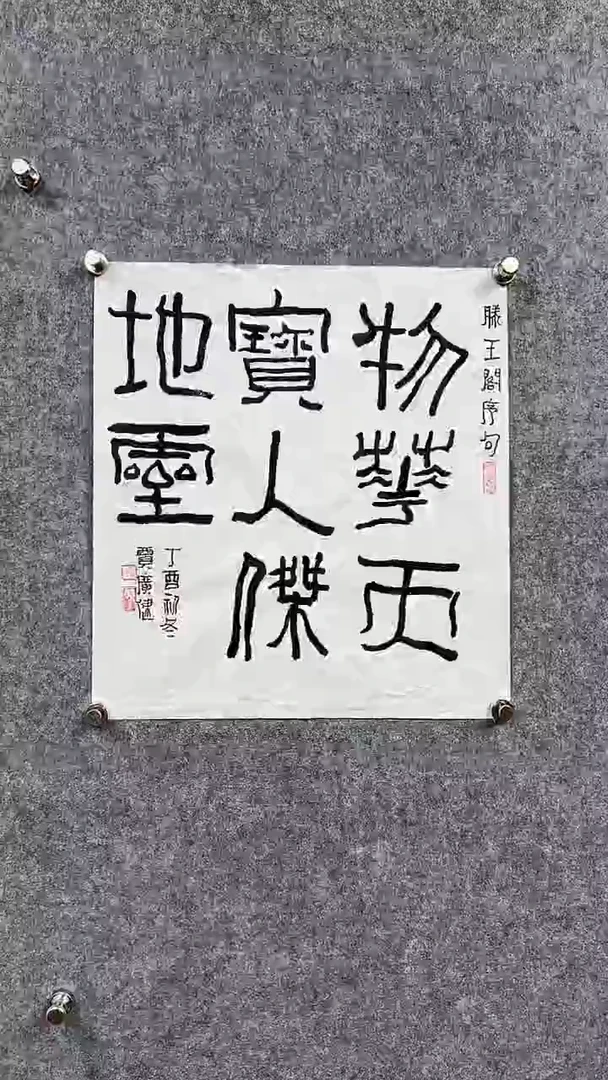 滕王閣序句
物華天
寶人傑
地靈
丁酉初冬
賈廣健